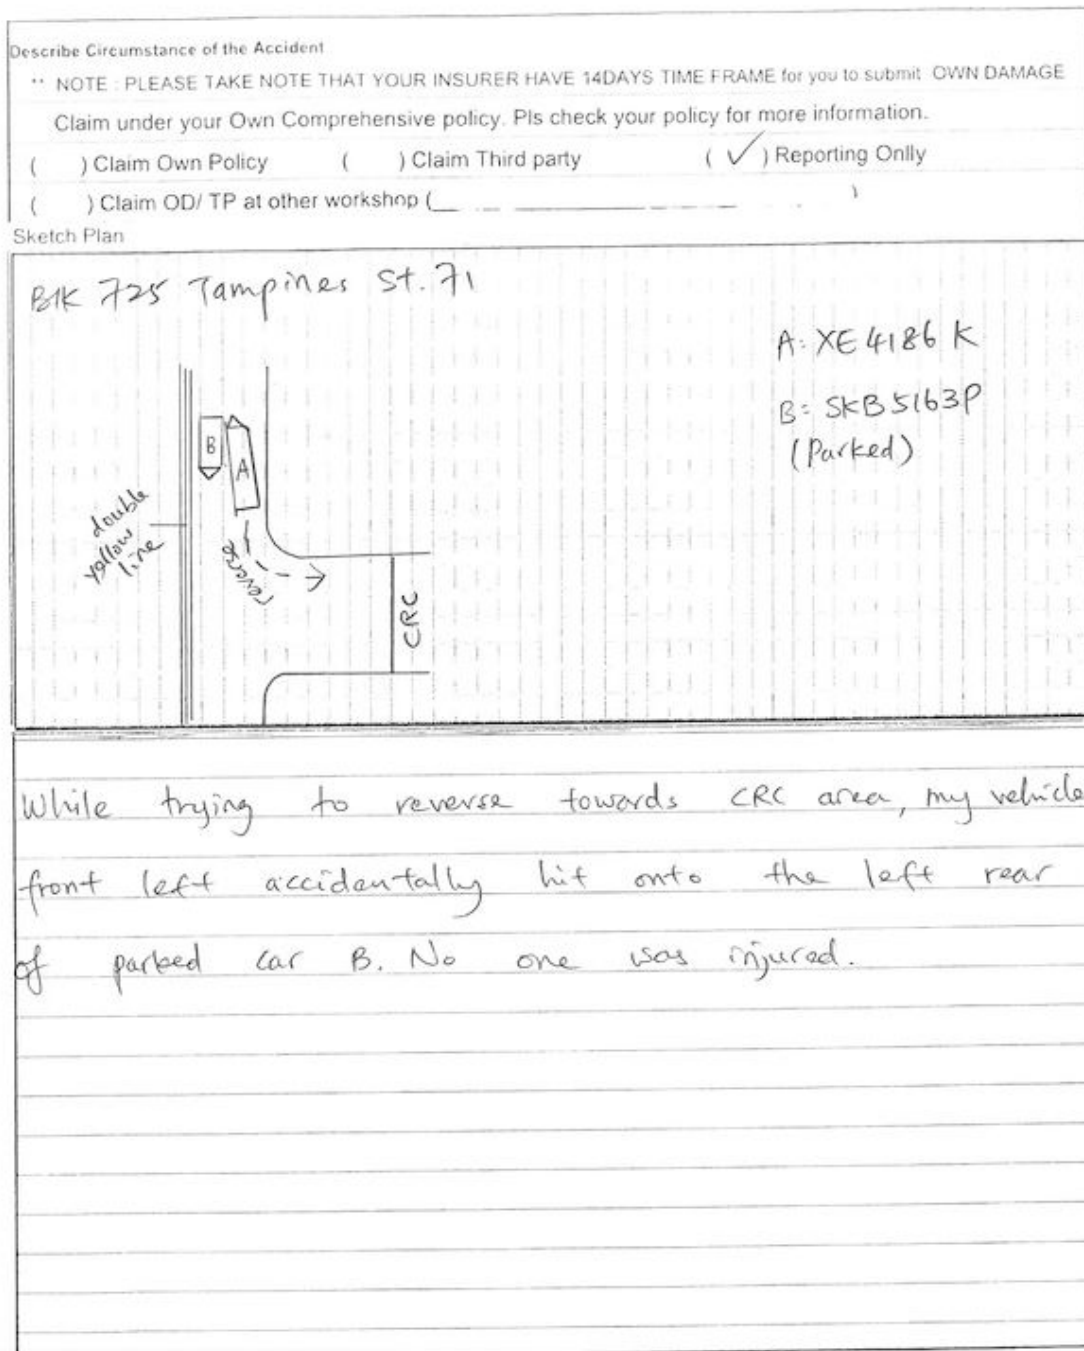 Describe Circumstance of the Accident
** NOTE : PLEASE TAKE NOTE THAT YOUR INSURER HAVE 14DAYS TIME FRAME for you to submit OWN DAMAGE
Claim under your Own Comprehensive policy. Pls check your policy for more information.
( ) Claim Own Policy ( ) Claim Third party ( ✓ ) Reporting Onlly
( ) Claim OD/ TP at other workshop (_____ )
Sketch Plan
Blk 725 Tampines St. 71
A: XE 4186 K
B: SKB 5163P
(Parked)
B
A
double
yellow
line
reverse
CRC
While trying to reverse towards CRC area, my vehicle
front left accidentally hit onto the left rear
of parked car B. No one was injured.